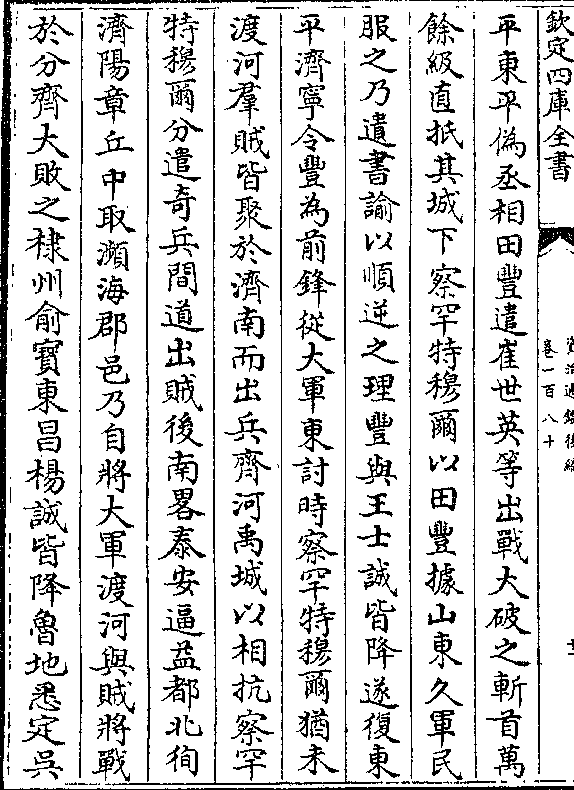 欽定四庫全書
資治通鑑後編
卷一百八十
平東平偽丞相田豐遣崔世英等出戰大破之斬首萬
餘級直抵其城下察罕特穆爾以田豐據山東久軍民
服之乃遺書諭以順逆之理豐與王士誠皆降遂復東
平濟寧令豐為前鋒從大軍東討時察罕特穆爾猶未
渡河羣賊皆聚於濟南而出兵齊河禹城以相抗察罕
特穆爾分遣奇兵間道出賊後南畧泰安逼益都北徇
濟陽章丘中取瀕海郡邑乃自將大軍渡河與賊將戰
於分齊大敗之棣州俞寶東昌楊誠皆降魯地悉定吳